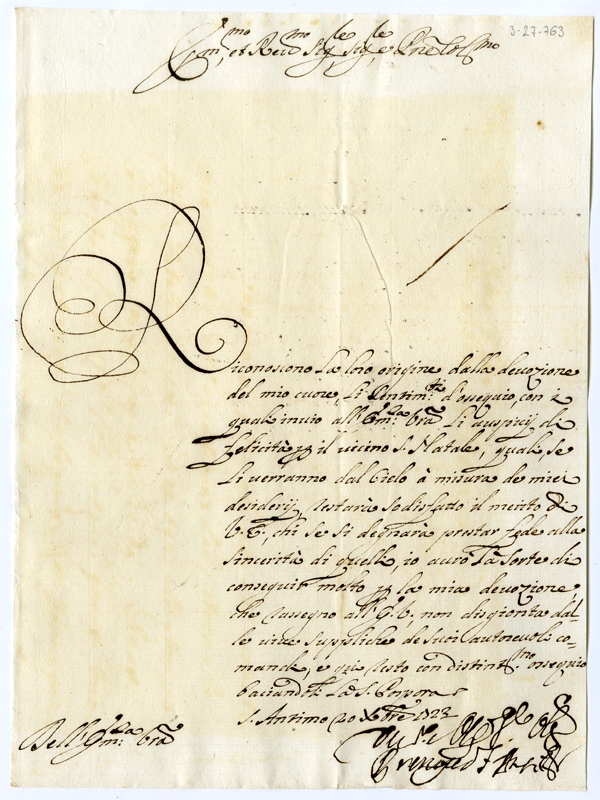 3-27-763
Em.mo, et Rev.mo Sig.re, Sig.re, e P'rne Col.mo
Riconoscono La loro origine dalla devozione
del mio cuore, Li sentim.ti d'ossequio, con i
quali invio all'Em.za Vra Li auspicij di
felicità p il vicino S. Natale, quali, se
Li verranno dal Cielo à misura de miei
desiderij, restarà sodisfatto il merito di
V. E., chi se si degnarà prestar fede alla
sincerità di quelli, io aurò La sorte di
conseguir molto p la mia devozione,
che rassegno all'E. V. non disgionta dal-
le vive suppliche de suoi autorevoli co-
mandi, e qui resto con distint.mo ossequio
baciandoli La S. Porpora
S. Antimo 20 Xbre 1723
Dell'Em.za Vra